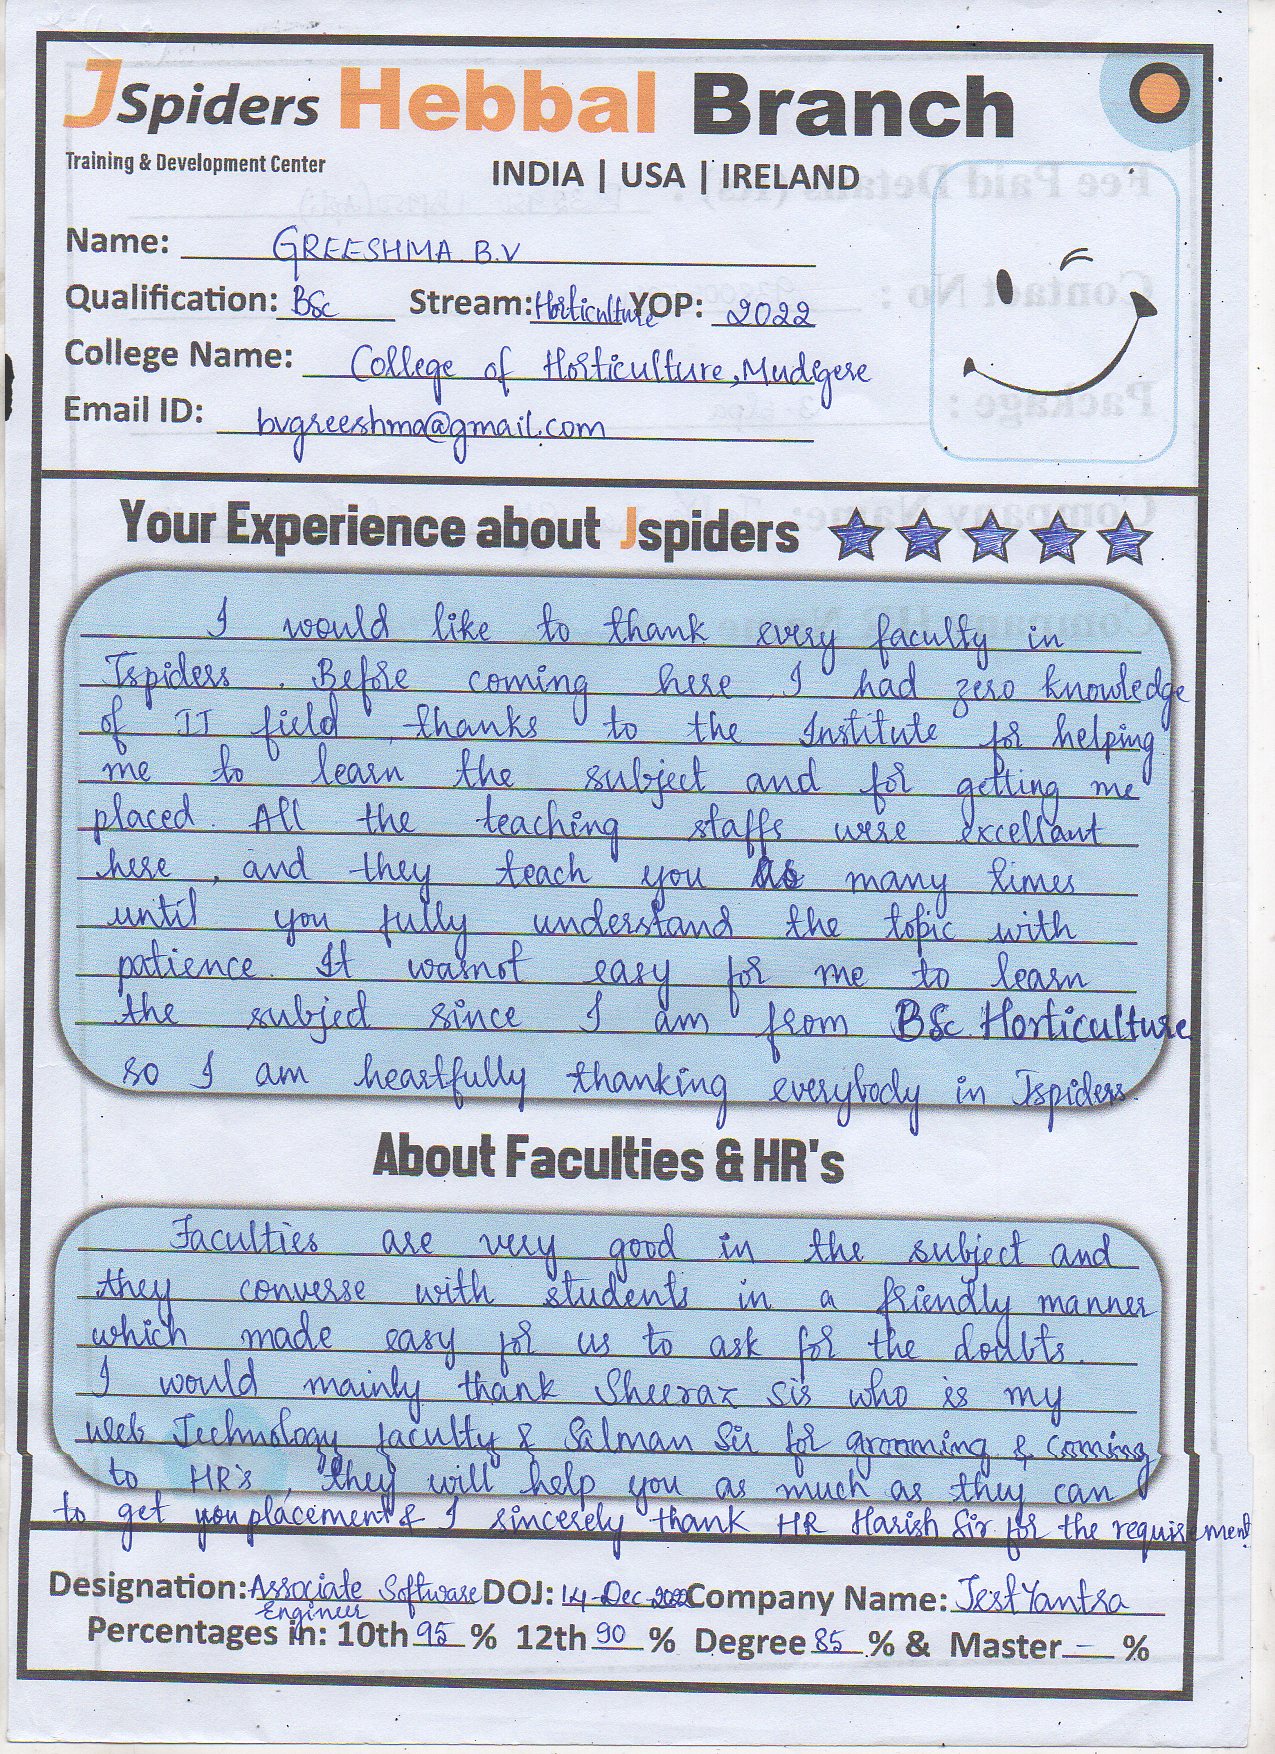 JSpiders Hebbal Branch
Training & Development Center
INDIA | USA | IRELAND
Name: GREESHMA B.V
Qualification: BSc Stream: Horticulture YOP: 2022
College Name: College of Horticulture, Mudigere
Email ID: bvgreeshma@gmail.com
Your Experience about Jspiders
I would like to thank every faculty in
Jspiders. Before coming here I had zero knowledge
of IT field, thanks to the Institute for helping
me to learn the subject and for getting me
placed. All the teaching staffs were excellant
here, and they teach you as many times
until you fully understand the topic with
patience. It wasnot easy for me to learn
the subject since I am from BSc Horticulture
so I am heartfully thanking everybody in Jspiders.
About Faculties & HR's
Faculties are very good in the subject and
they converse with students in a friendly manner
which made easy for us to ask for the doubts.
I would mainly thank Sheeraz sir who is my
web Technology faculty & Salman Sir for grooming & coming
to HR's, they will help you as much as they can
to get you placement & I sincerely thank HR Harish Sir for the requirement
Designation: Associate Software DOJ: 14-Dec-2022 Company Name: TestYantra
Engineer
Percentages in: 10th 95 % 12th 90 % Degree 85 % & Master - %